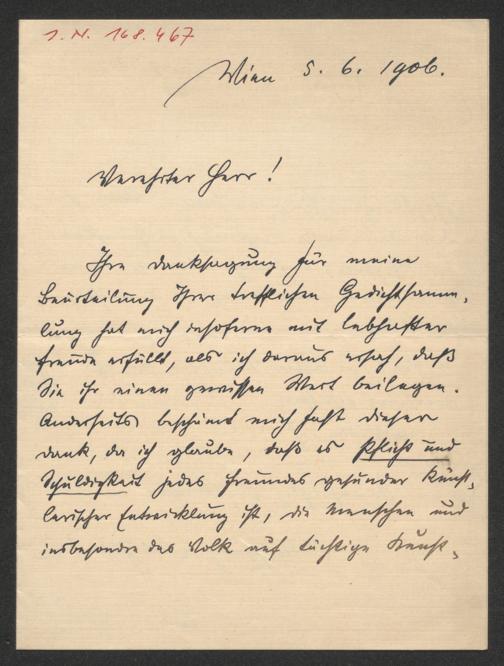 I. N. 168.467
Wien 5. 6. 1906.
Verehrter Herr!
Ihre Danksagung für meine
Beurteilung Ihrer trefflichen Gedichtsamm-
lung hat mich insoferne mit lebhafter
Freude erfüllt, als ich daraus ersah, daß
Sie ihr einen gewissen Wert beilegen.
Anderseits beschämt mich fast dieser
Dank, da ich glaube, daß es Pflicht und
Schuldigkeit jedes Freundes gesunder künst-
lerischer Entwicklung ist, die Menschen und
insbesondre das Volk auf tüchtige Kunst-